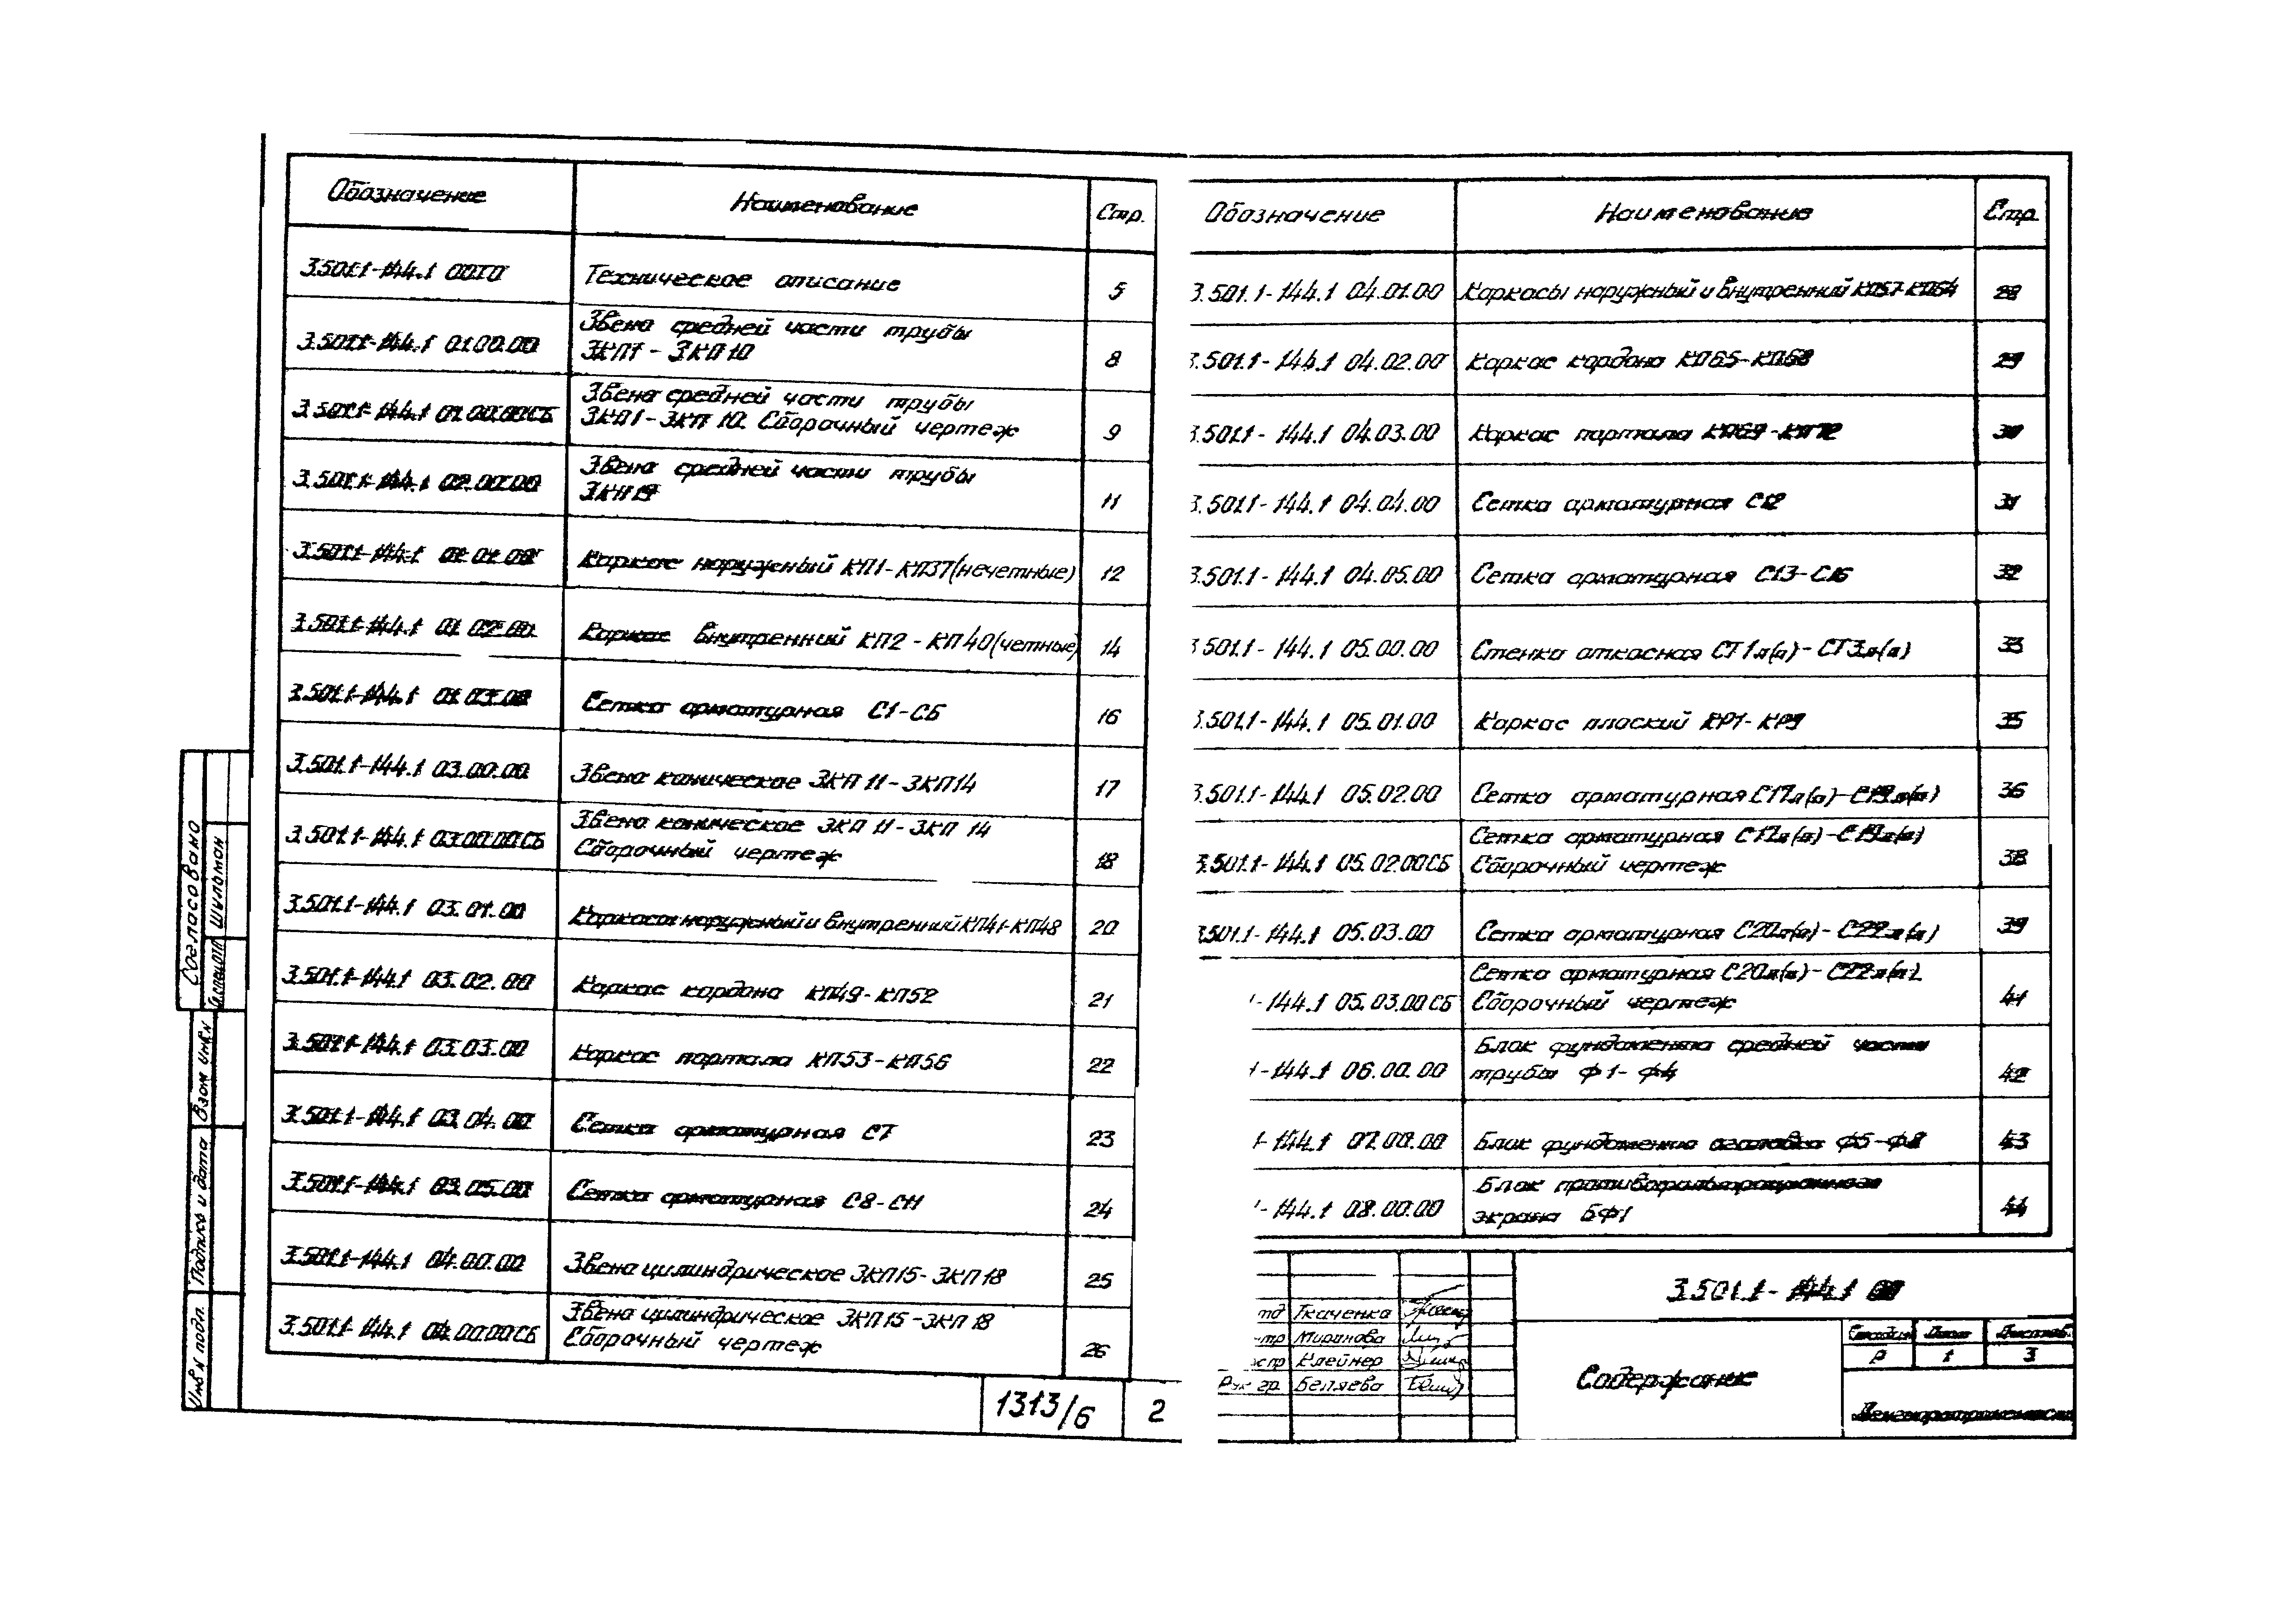 Обозначение Наименование Стр.
3.501.1-144.1 00ТО Техническое описание 5
3.501.1-144.1 01.00.00 Звено средней части трубы
ЗКП1 - ЗКП10 8
3.501.1-144.1 01.00.00СБ Звено средней части трубы
ЗКП1-ЗКП 10. Сборочный чертеж 9
3.501.1-144.1 02.00.00 Звено средней части трубы
ЗКП19 11
3.501.1-144.1 01.01.00 Каркас наружный КП1-КП37(нечетные) 12
3.501.1-144.1 01.02.00 Каркас внутренний КП2-КП40(четные) 14
3.501.1-144.1 01.03.00 Сетка арматурная С1-С6 16
3.501.1-144.1 03.00.00 Звено коническое ЗКП 11-ЗКП14 17
3.501.1-144.1 03.00.00СБ Звено коническое ЗКП 11-ЗКП 14
Сборочный чертеж 18
3.501.1-144.1 03.01.00 Каркасы наружный и внутренний КП41-КП48 20
3.501.1-144.1 03.02.00 Каркас кордона КП49-КП52 21
3.501.1-144.1 03.03.00 Каркас портала КП53-КП56 22
3.501.1-144.1 03.04.00 Сетка арматурная С7 23
3.501.1-144.1 03.05.00 Сетка арматурная С8-С11 24
3.501.1-144.1 04.00.00 Звено цилиндрическое ЗКП15-ЗКП18 25
3.501.1-144.1 04.00.00СБ Звено цилиндрическое ЗКП15-ЗКП18
Сборочный чертеж 26
1313/6 2
Обозначение Наименование Стр.
3.501.1-144.1 04.01.00 Каркасы наружный и внутренний КП57-КП64 28
3.501.1-144.1 04.02.00 Каркас кордона КП65-КП68 29
3.501.1-144.1 04.03.00 Каркас портала КП69-КП72 30
3.501.1-144.1 04.04.00 Сетка арматурная С12 31
3.501.1-144.1 04.05.00 Сетка арматурная С13-С16 32
3.501.1-144.1 05.00.00 Стенка откосная СТ1л(п)-СТ3л(п) 33
3.501.1-144.1 05.01.00 Каркас плоский КР1-КР9 35
3.501.1-144.1 05.02.00 Сетка арматурная С17л(п)-С19л(п) 36
3.501.1-144.1 05.02.00СБ Сетка арматурная С17л(п)-С19л(п)
Сборочный чертеж 38
3.501.1-144.1 05.03.00 Сетка арматурная С20л(п)-С22л(п) 39
1-144.1 05.03.00СБ Сетка арматурная С20л(п)-С22л(п).
Сборочный чертеж 41
1-144.1 06.00.00 Блок фундамента средней части
трубы Ф1-Ф4 42
1-144.1 07.00.00 Блок фундамента оголовка Ф5-Ф8 43
1-144.1 08.00.00 Блок противофильтрационного
экрана БФ1 44
Согласовано
Гл.спец.ОТП Шульман
Взам инв.N
Подпись и дата
Инв N подл.
отд Ткаченко
Миронова
Клейнер
Рук гр. Беляева
3.501.1-144.1 00
Содержание
Стадия Лист Листов
Р 1 3
Ленгипротрансмост